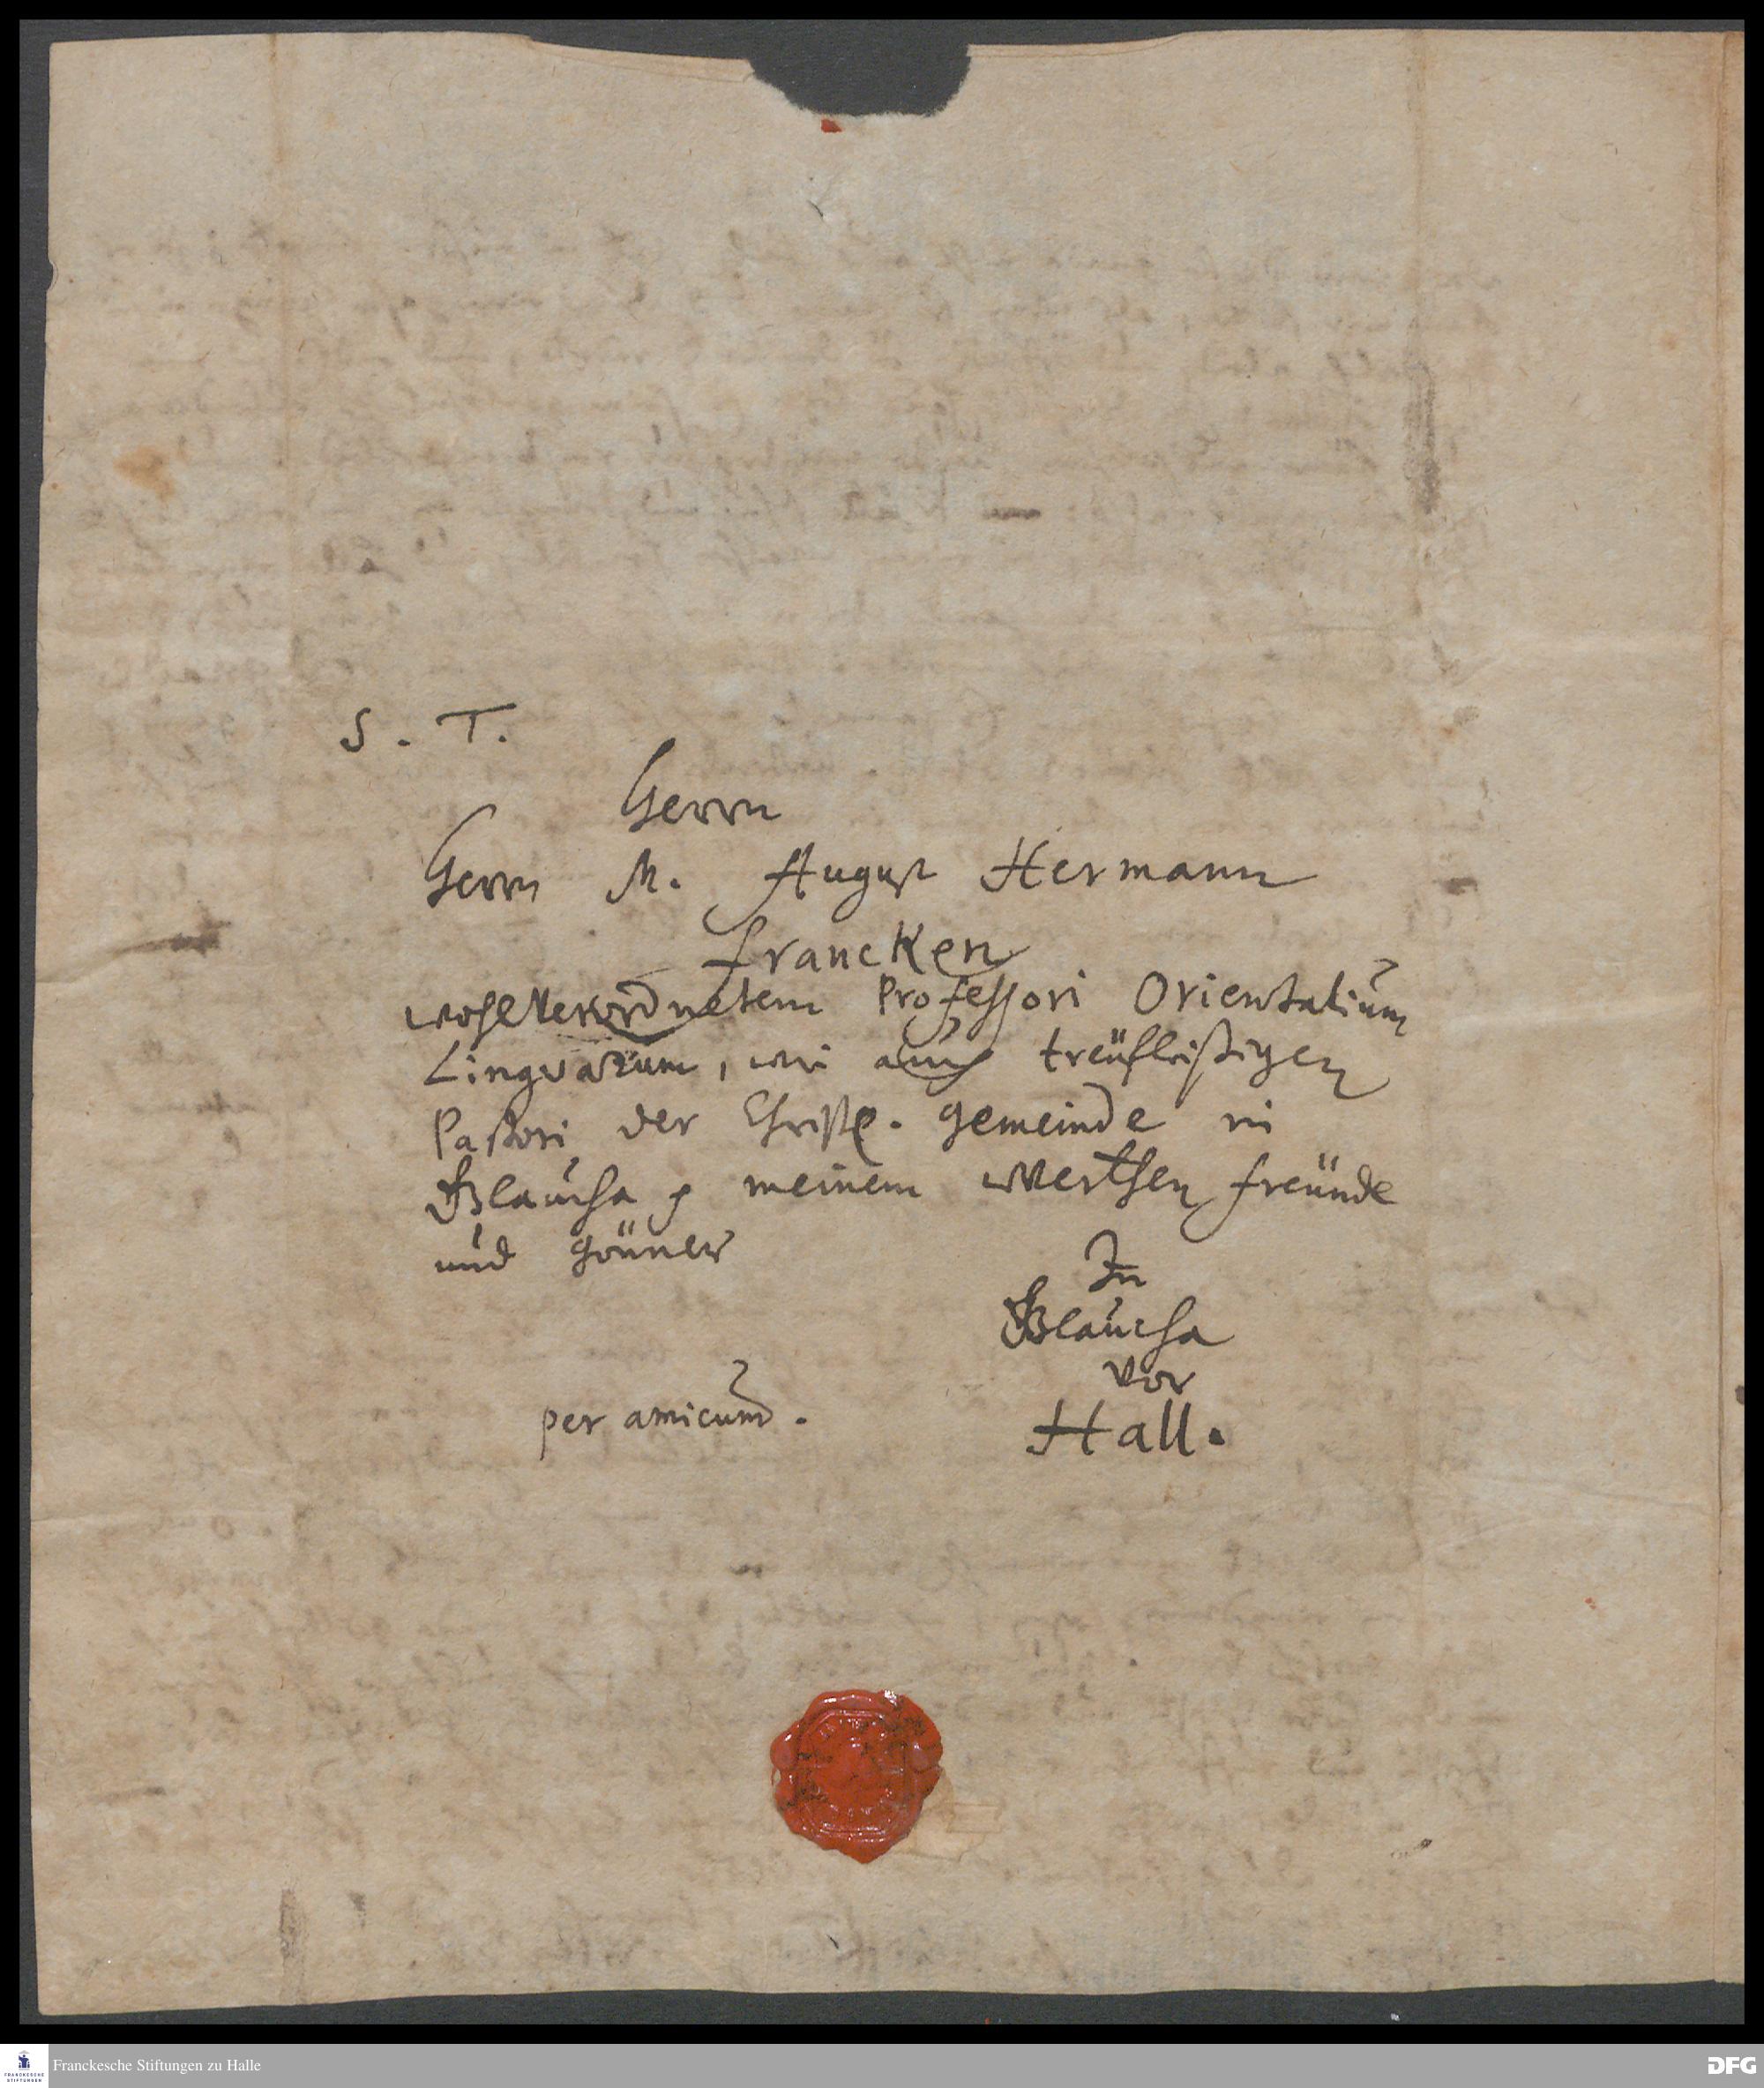 S. T.
Herrn
Herrn M. August Hermann
Francken
wohlverordnetem Professori Orientalium
Lingvarum, wie auch treüfleißigen
Pastori der Christl. Gemeinde in
Glaucha, meinem werthen freünde
und Gönner
In
Glaucha
vor
Hall.
per amicum.
Franckesche Stiftungen zu Halle
FRANCKESCHE
STIFTUNGEN
DFG